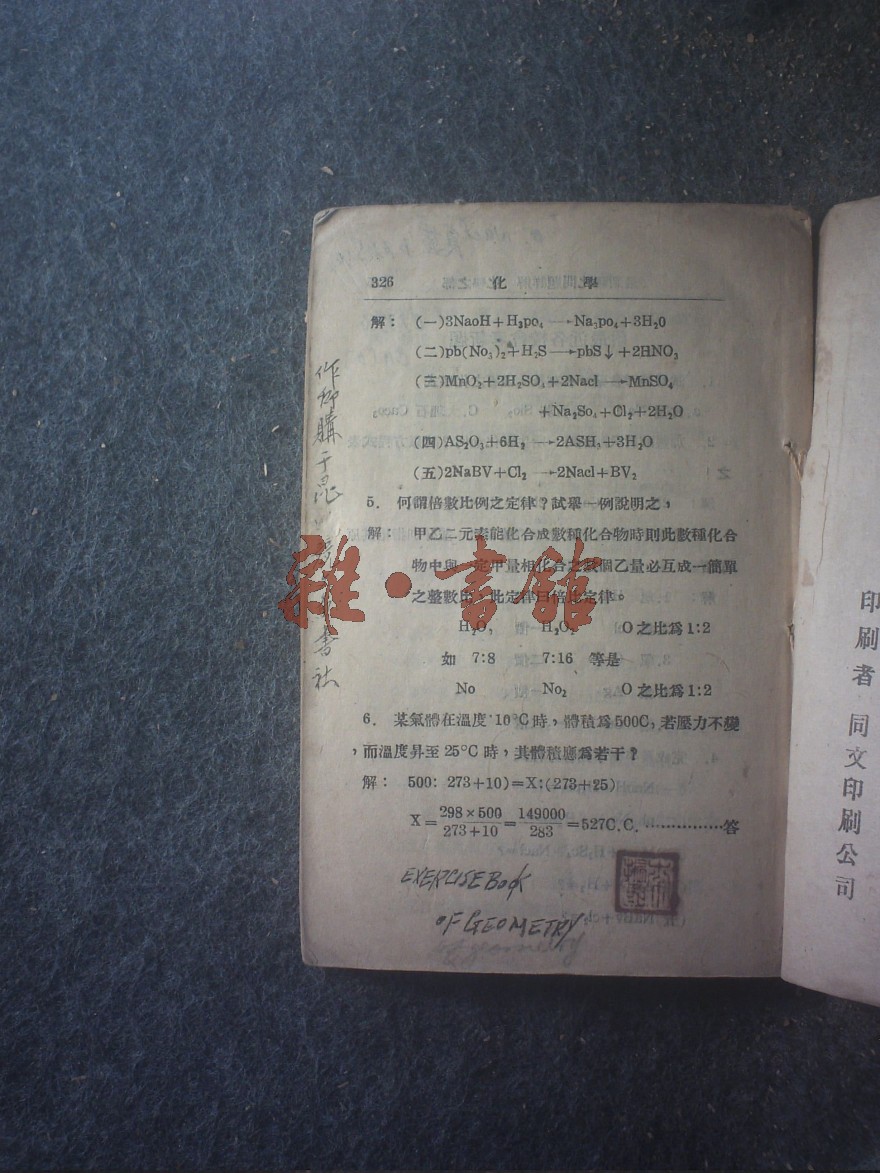 326 化學
解：(一)3NaoH+H₃po₄→Na₃po₄+3H₂0
(二)pb(No₃)₂+H₂S→pbS↓+2HNO₃
(三)MnO₂+2H₂SO₄+2Nacl→MnSO₄
+Na₂So₄+Cl₂+2H₂O
(四)AS₂O₃+6H₂→2ASH₃+3H₂O
(五)2NaBV+Cl₂→2Nacl+BV₂
5. 何謂倍數比例之定律？試舉一例說明之，
解：甲乙二元素能化合成數種化合物時則此數種化合
物中與一定甲量相化合之數個乙量必互成一簡單
之整數比，此定律曰倍比定律。
H₂O, H₂O₂ O之比爲1:2
如 7:8 7:16 等是
No No₂ O之比爲1:2
6. 某氣體在溫度10°C時，體積爲500C，若壓力不變
，而溫度昇至25°C時，其體積應爲若干？
解： 500: 273+10)=X:(273+25)
X=298×500/273+10=149000/283=527C.C.……………答
EXERCISE BOOK
OF GEOMETRY
購于思
書社
雜·書館
印刷者 同文印刷公司